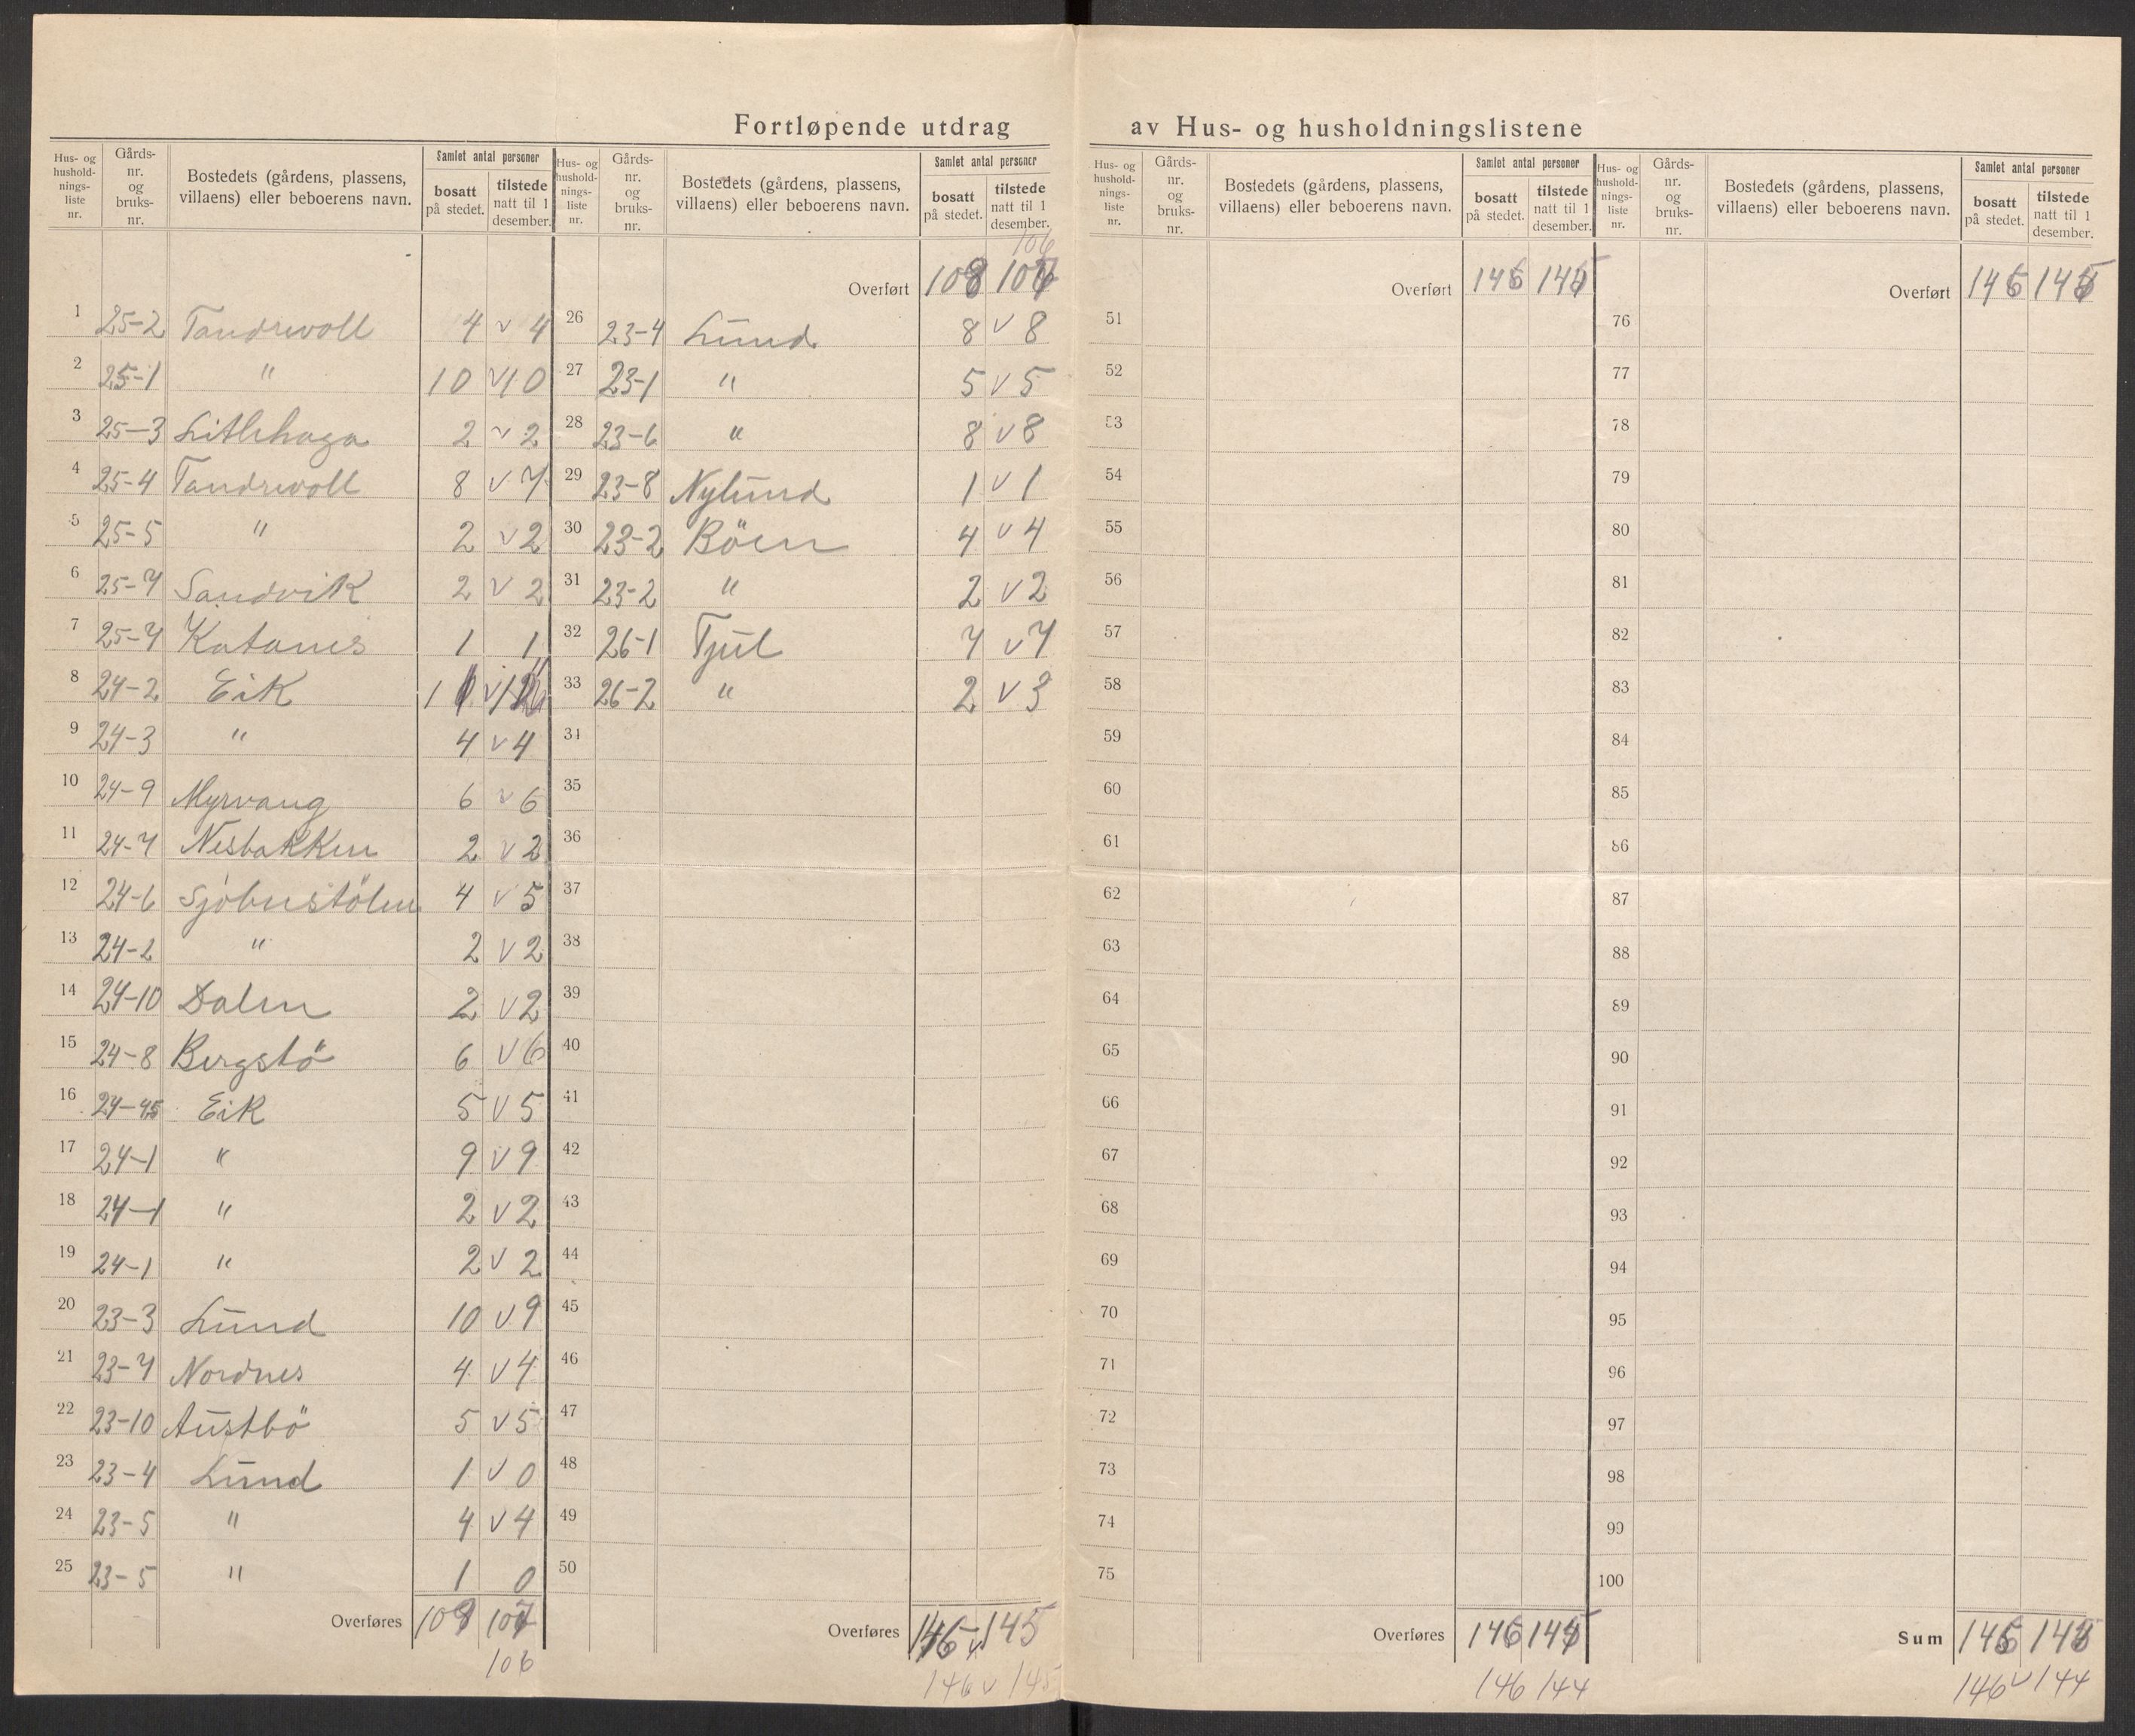 Fortløpende utdrag av Hus- og husholdningslistene
Hus- og hushold-nings-liste nr. | Gårds-nr. og bruks-nr. | Bostedets (gårdens, plassens, villaens) eller beboerens navn. | Samlet antal personer | bosatt på stedet. | tilstede natt til 1 desember.
1 25-2 Tandrevoll 4 v 4
2 25-1 " 10 v 10
3 25-3 Litlehaga 2 v 2
4 25-4 Tandrevoll 8 v 7
5 25-5 " 2 v 2
6 25-7 Sandvik 2 v 2
7 25-7 Katanes 1 1
8 24-2 Eik
9 24-3 " 4 v 4
10 24-9 Myrvang 6 v 6
11 24-7 Nesbakken 2 v 2
12 24-6 Sjöbustölen 4 v 5
13 24-2 " 2 v 2
14 24-10 Dalen 2 v 2
15 24-8 Bergstö 6 v 6
16 Eik 5 v 5
17 24-1 " 9 v 9
18 24-1 " 2 v 2
19 24-1 " 2 v 2
20 23-3 Lund 10 v 9
21 23-7 Nordnes 4 v 4
22 23-10 Austbö 5 v 5
23 23-4 Lund 1 v 0
24 23-5 " 4 v 4
25 23-5 " 1 0
Overføres
106
Hus- og hushold-nings-liste nr. | Gårds-nr. og bruks-nr. | Bostedets (gårdens, plassens, villaens) eller beboerens navn. | Samlet antal personer | bosatt på stedet. | tilstede natt til 1 desember.
106
Overført 108
26 23-4 Lund 8 v 8
27 23-1 " 5 v 5
28 23-6 " 8 v 8
29 23-8 Nylund 1 v 1
30 23-2 Böen 4 v 4
31 23-2 " 2 v 2
32 26-1 Tjul 7 v 7
33 26-2 " 2 v 3
34
35
36
37
38
39
40
41
42
43
44
45
46
47
48
49
50
Overføres 146 v 145
146 v 145
Hus- og hushold-nings-liste nr. | Gårds-nr. og bruks-nr. | Bostedets (gårdens, plassens, villaens) eller beboerens navn. | Samlet antal personer | bosatt på stedet. | tilstede natt til 1 desember.
Overført 146 145
51
52
53
54
55
56
57
58
59
60
61
62
63
64
65
66
67
68
69
70
71
72
73
74
75
Overføres 146 145
146 144
Hus- og hushold-nings-liste nr. | Gårds-nr. og bruks-nr. | Bostedets (gårdens, plassens, villaens) eller beboerens navn. | Samlet antal personer | bosatt på stedet. | tilstede natt til 1 desember.
Overført 146 145
76
77
78
79
80
81
82
83
84
85
86
87
88
89
90
91
92
93
94
95
96
97
98
99
100
Sum 146 145
146 v 144